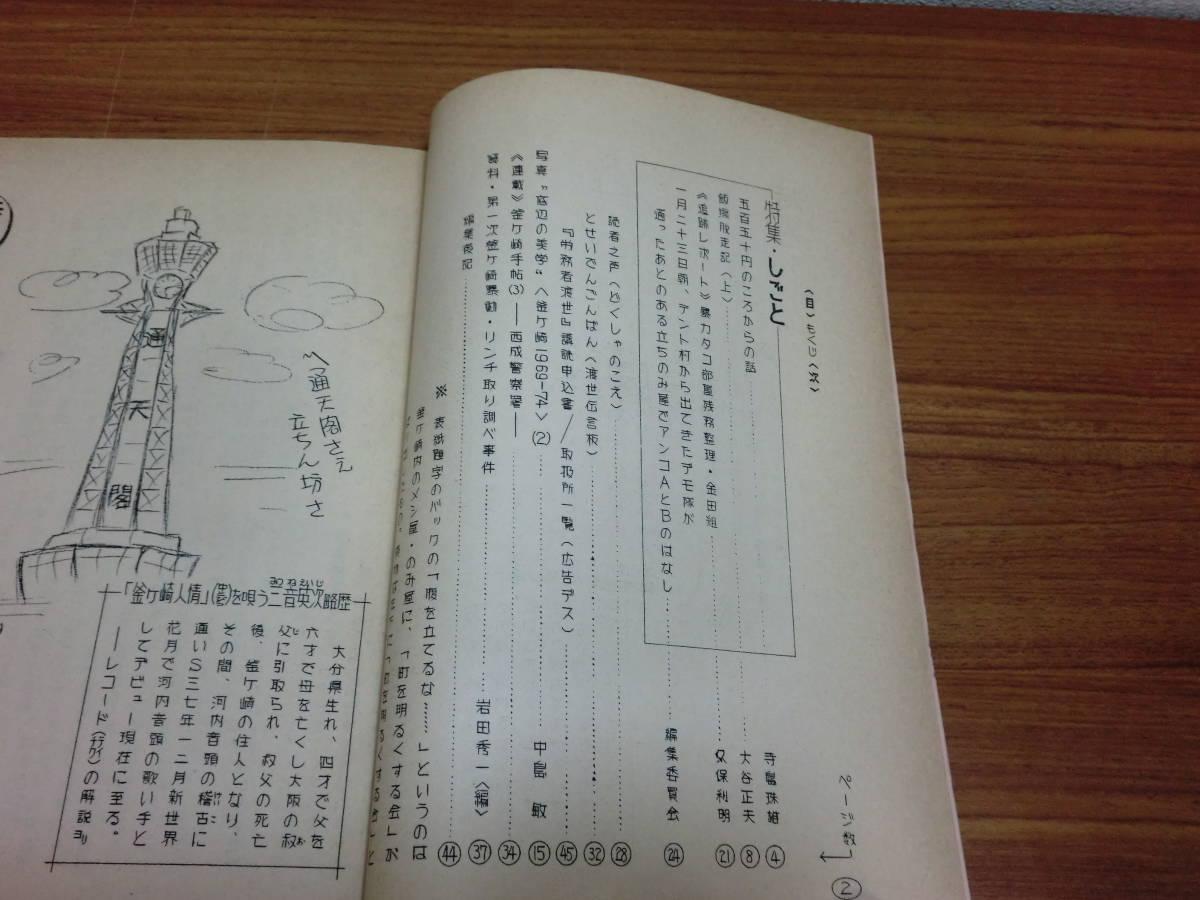 〈目〉もくじ〈次〉
ページ数
②
特集・しごと
五百五十円のころからの話……寺島珠雄 ④
飯場脱走記〈上〉……大谷正夫 ⑧
《追跡レポート》暴力タコ部屋残務整理・金田組……久保利明 ㉑
一月二十三日朝、テント村から出てきたデモ隊が
通ったあとのある立ちのみ屋でアンコAとBのはなし……編集委員会 ㉔
読者之声〈どくしゃのこえ〉……㉘
とせいでんごんばん〈渡世伝言板〉……㉜
『労務者渡世』購読申込書//取扱所一覧〈広告デス〉……㊺
写真“底辺の美学”〈釜ケ崎1969-74〉(2)……中島 敏 ⑮
《連載》釜ケ崎手帖(3)——西成警察署——……㉞
資料・第一次釜ケ崎暴動・リンチ取り調べ事件……岩田秀一〈編〉 ㊲
編集後記……㊹
※ 表紙題字のバックの「腹を立てるな……」というのは
釜ケ崎内のメシ屋・のみ屋に、「町を明るくする会」が
通天閣
〽通天閣さえ
立ちん坊さ
「釜ケ崎人情」を唄う三音英次略歴
みつねえいじ
大分県生れ、四才で父を
六才で母を亡くし大阪の叔
父に引取られ、叔父の死亡
後、釜ケ崎の住人となり、
その間、河内音頭の稽古に
通いS三七年一二月新世界
花月で河内音頭の歌い手と
してデビュー現在に至る。
——レコード〈テイチク〉の解説ヨリ